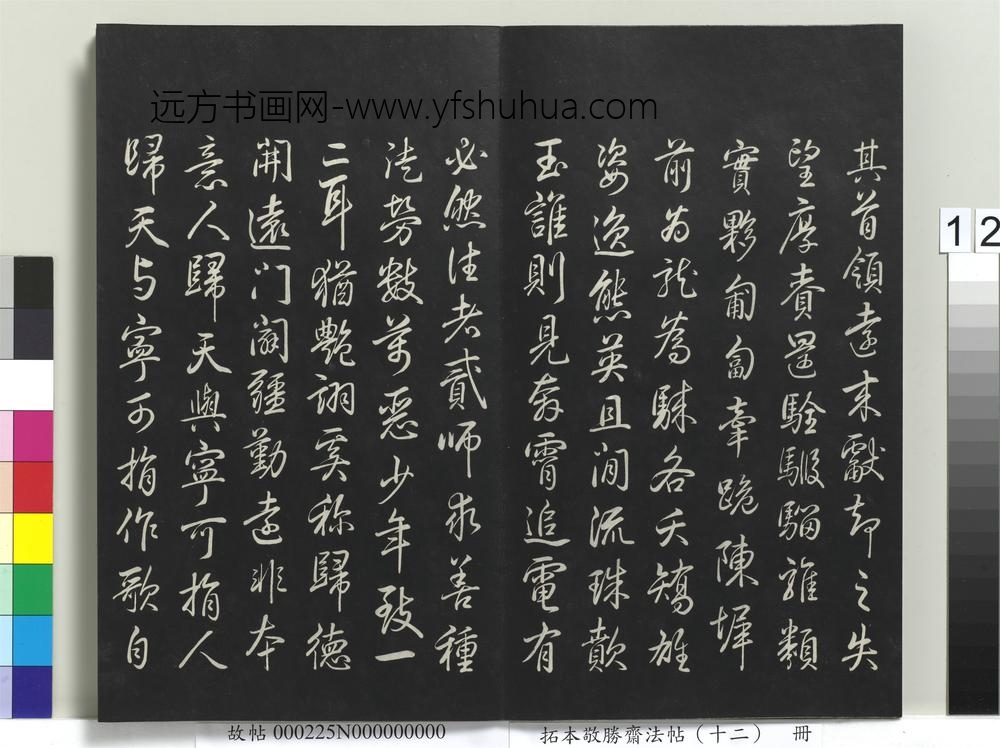 远方书画网-www.yfshuhua.com
其首領遠來獻却之失
望厚賚駩騢騮雜類
實夥匍匐牽跪陳墀
前為龍為騋各夭矯雄
姿逸態英且閒流珠歕
玉誰則見奔霄追電有
必然往者貳師求善種
徒勞數萬惡少年致一
二耳猶艷詡奚称歸德
開遠門闢疆勤遠非本
意人歸天與寧可捐人
歸天与寧可捐作歌自
12
故帖 000225N000000000
拓本敬勝齋法帖（十二） 冊